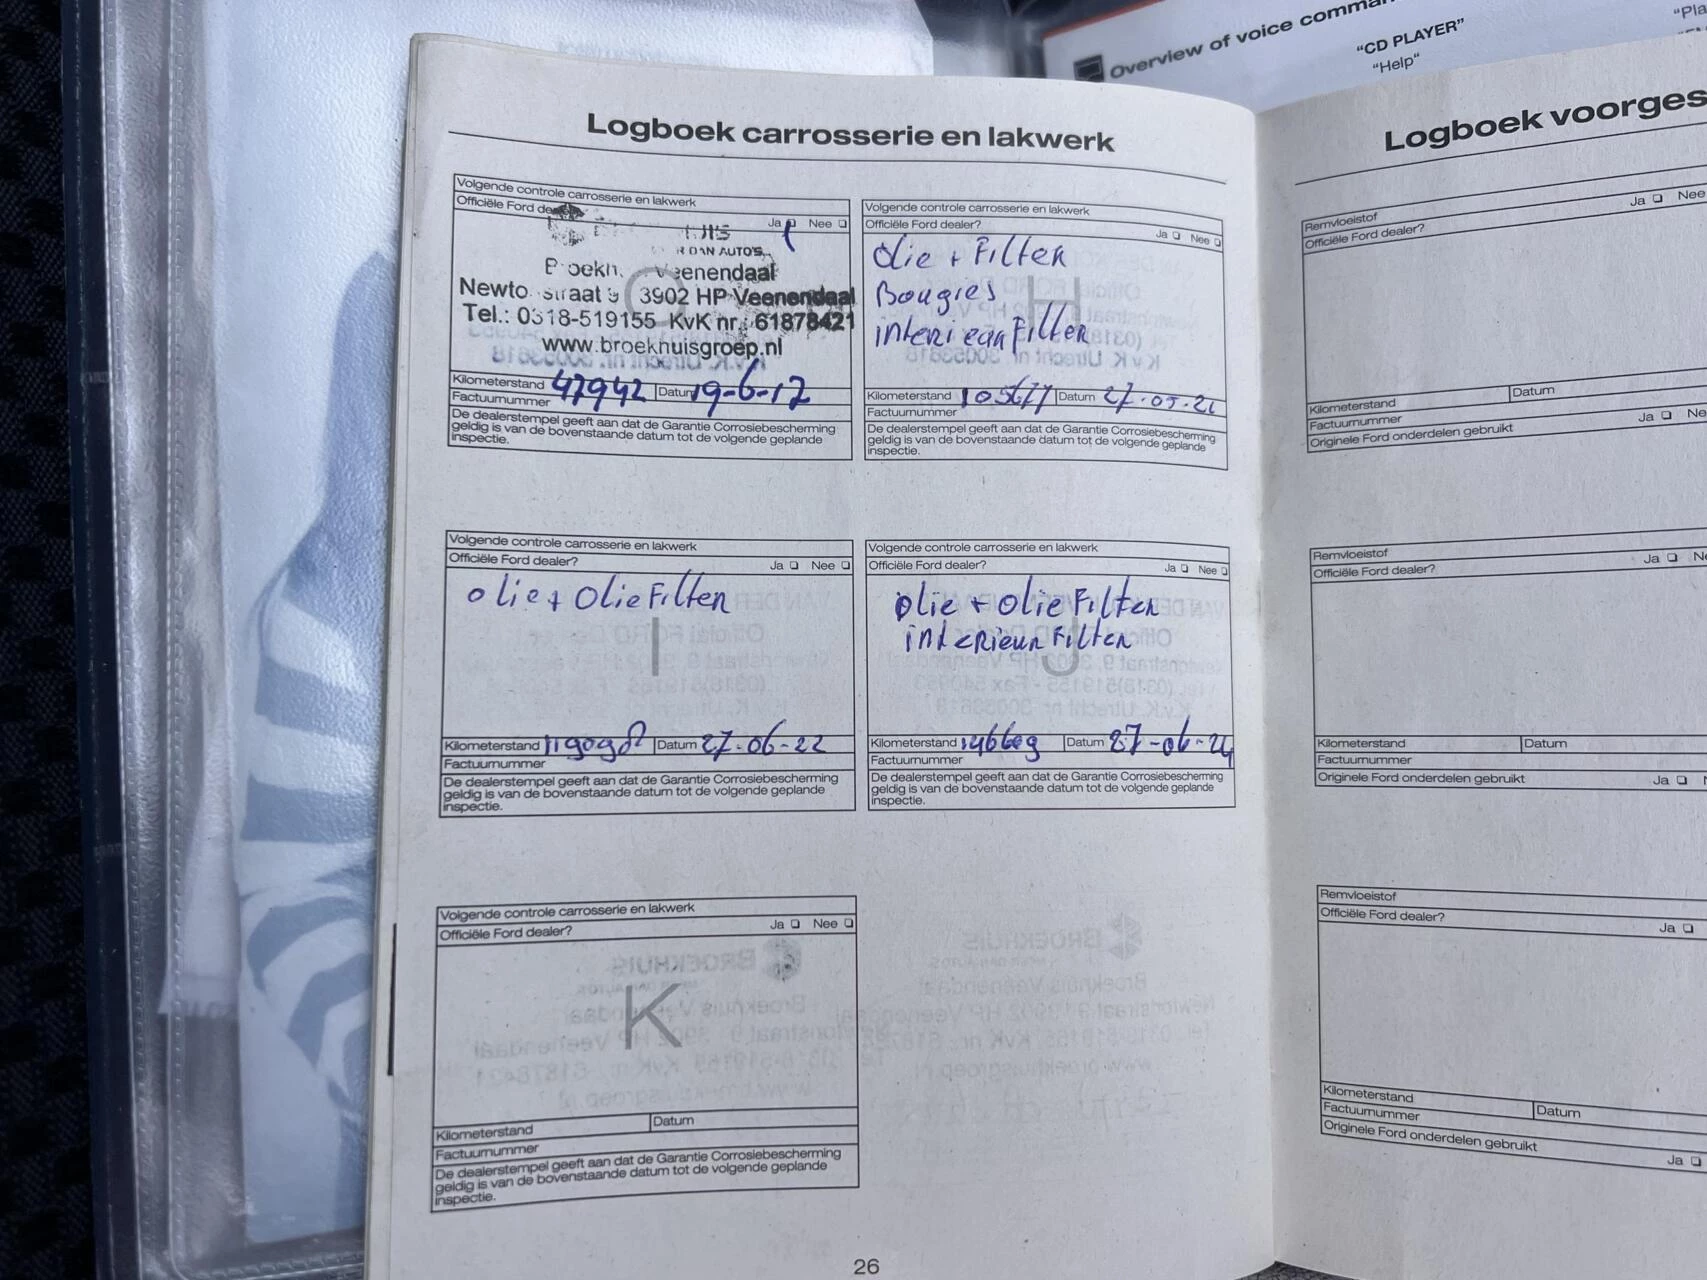 Overview of voice comma
"CD PLAYER"
"Help"
"Pla
Logboek carrosserie en lakwerk
Volgende controle carrosserie en lakwerk
Officiële Ford de
Ja Nee
DAN AUTO'S
Broekh. Veenendaal
Newto straat 9 3902 HP Veenendaal
Tel.: 0318-519155 KvK nr.: 61878421
www.broekhuisgroep.nl
Kilometerstand 47942 Datum 19-6-17
Factuurnummer
De dealerstempel geeft aan dat de Garantie Corrosiebescherming
geldig is van de bovenstaande datum tot de volgende geplande
inspectie.
Volgende controle carrosserie en lakwerk
Officiële Ford dealer?
Ja Nee
H
Olie + Filter
Bougies
interieur Filter
Kilometerstand 105677 Datum
Factuurnummer
De dealerstempel geeft aan dat de Garantie Corrosiebescherming
geldig is van de bovenstaande datum tot de volgende geplande
inspectie.
Volgende controle carrosserie en lakwerk
Officiële Ford dealer?
Ja Nee
olie + Olie Filter
I
Kilometerstand 119098 Datum 27-06-22
Factuurnummer
De dealerstempel geeft aan dat de Garantie Corrosiebescherming
geldig is van de bovenstaande datum tot de volgende geplande
inspectie.
Volgende controle carrosserie en lakwerk
Officiële Ford dealer?
Ja Nee
olie + olie Filter
interieur Filter
J
Kilometerstand 146609 Datum 27-06-24
Factuurnummer
De dealerstempel geeft aan dat de Garantie Corrosiebescherming
geldig is van de bovenstaande datum tot de volgende geplande
inspectie.
Volgende controle carrosserie en lakwerk
Officiële Ford dealer?
Ja Nee
K
Kilometerstand
Datum
Factuurnummer
De dealerstempel geeft aan dat de Garantie Corrosiebescherming
geldig is van de bovenstaande datum tot de volgende geplande
inspectie.
26
Logboek voorges
Remvloeistof
Officiële Ford dealer?
Ja Nee
Kilometerstand
Datum
Factuurnummer
Originele Ford onderdelen gebruikt
Ja Ne
Remvloeistof
Officiële Ford dealer?
Ja Ne
Kilometerstand
Datum
Factuurnummer
Originele Ford onderdelen gebruikt
Ja
Remvloeistof
Officiële Ford dealer?
Ja
Kilometerstand
Datum
Factuurnummer
Originele Ford onderdelen gebruikt
Ja